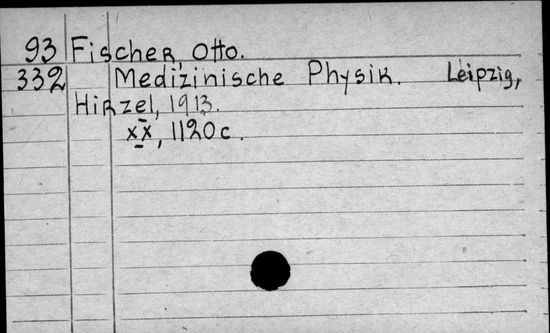 93 Fischer, Otto.
332 Medizinische Physik. Leipzig,
Hirzel, 1913.
xx, 1120 c.